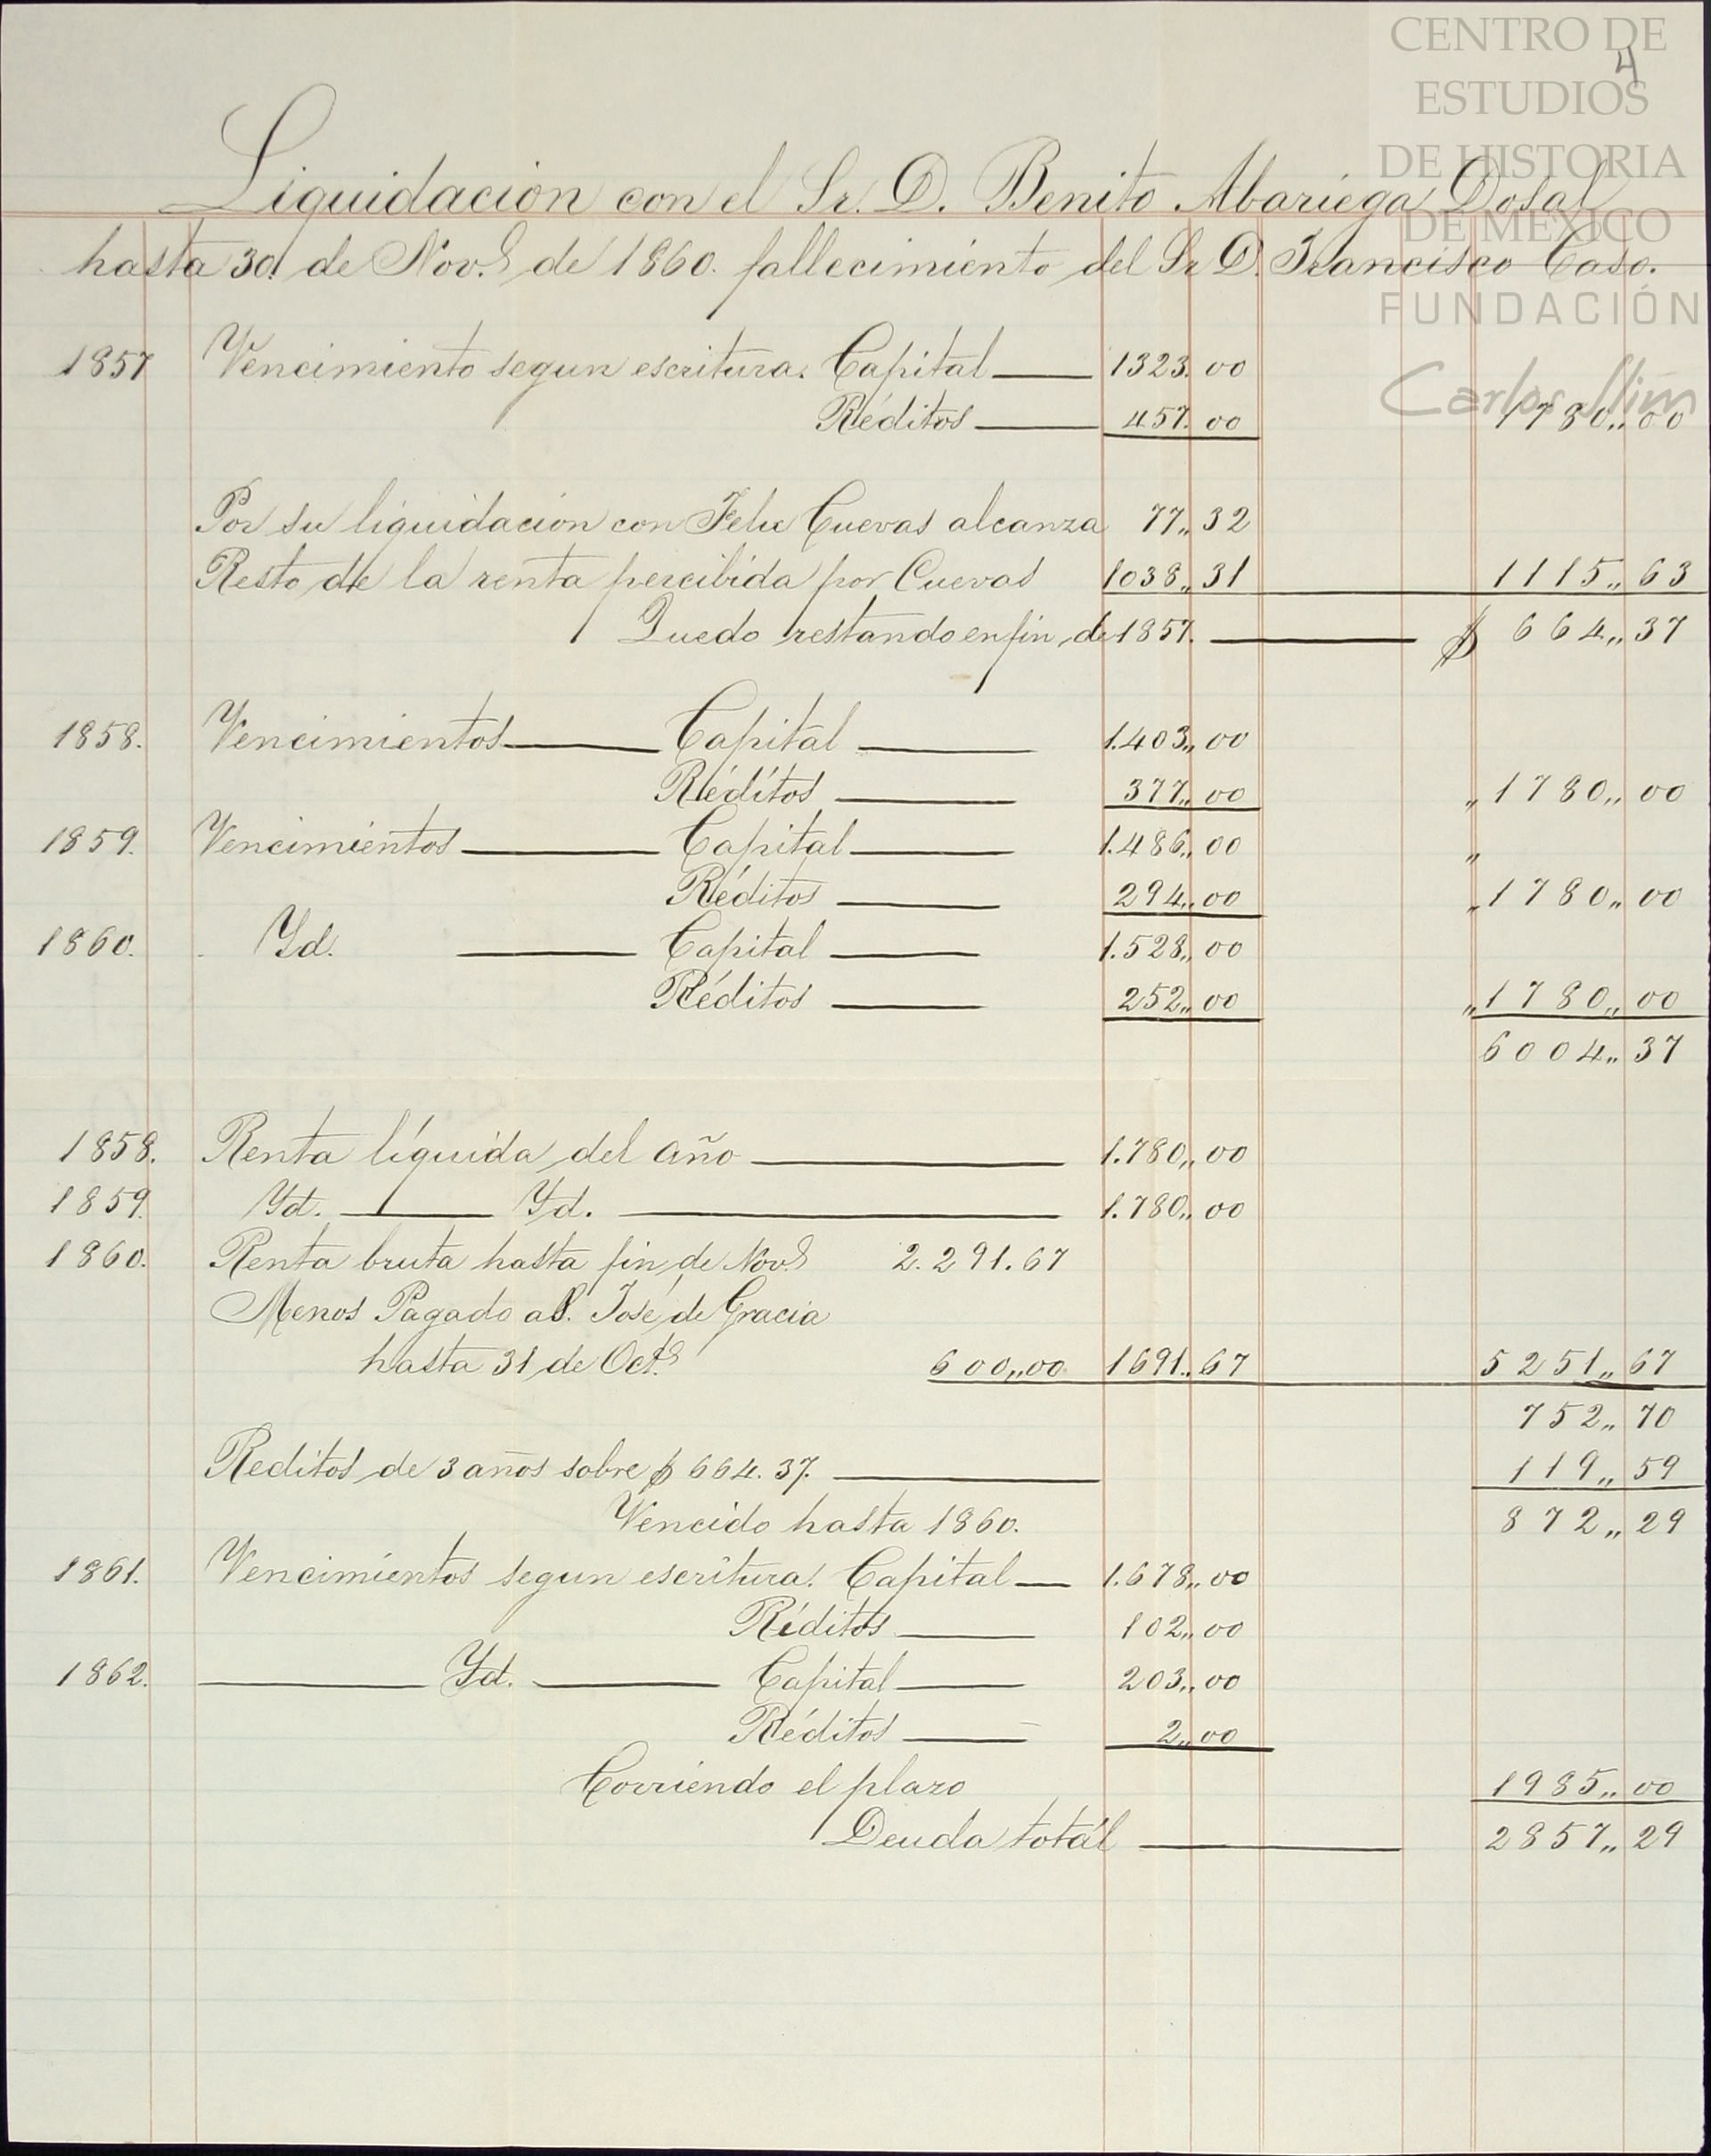 CENTRO DE
ESTUDIOS
DE HISTORIA
DE MEXICO
FUNDACIÓN
Carlos Slim
4
Liquidacion con el Sr. D. Benito Abariega Dosal
hasta 30 de Nov.e de 1860. fallecimiento del Sr D. Francisco Caso.
1857 Vencimiento segun escritura. Capital 1323.00
Réditos 457.00 1780,,00
Por su liquidacion con Felix Cuevas alcanza 77,,32
Resto de la renta percibida por Cuevas 1038,,31 1115,,63
Quedo restando en fin de 1857. $ 664,,37
1858. Vencimientos Capital 1.403,,00
Réditos 377,,00 ,,1780,,00
1859. Vencimientos Capital 1.486,,00 ,,
Réditos 294,,00 ,,1780,,00
1860. Yd. Capital 1.528,,00
Réditos 252,,00 ,,1780,,00
6004,,37
1858. Renta líquida del año 1.780,,00
1859. Yd. Yd. 1.780,,00
1860. Renta bruta hasta fin de Nov.e 2.291.67
Menos Pagado a S. José de Gracia
hasta 31 de Oct.e 600,,00 1691,,67 5251,,67
752,,70
Reditos de 3 años sobre $ 664.37. 119,,59
Vencido hasta 1860. 872,,29
1861. Vencimientos segun escritura. Capital 1.678,,00
Réditos 102,,00
1862. Yd. Capital 203,,00
Réditos 2,,00
Corriendo el plazo 1985,,00
Deuda totál 2857,,29